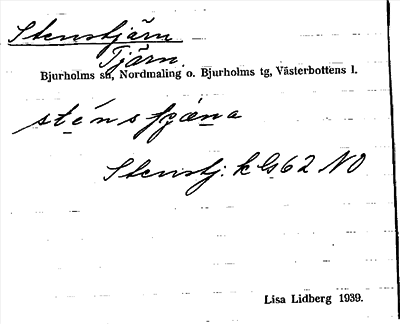 Stenstjärn
Tjärn.
Bjurholms sn, Nordmaling o. Bjurholms tg, Västerbottens l.
Stenstj. k Gs 62 NO
Lisa Lidberg 1939.